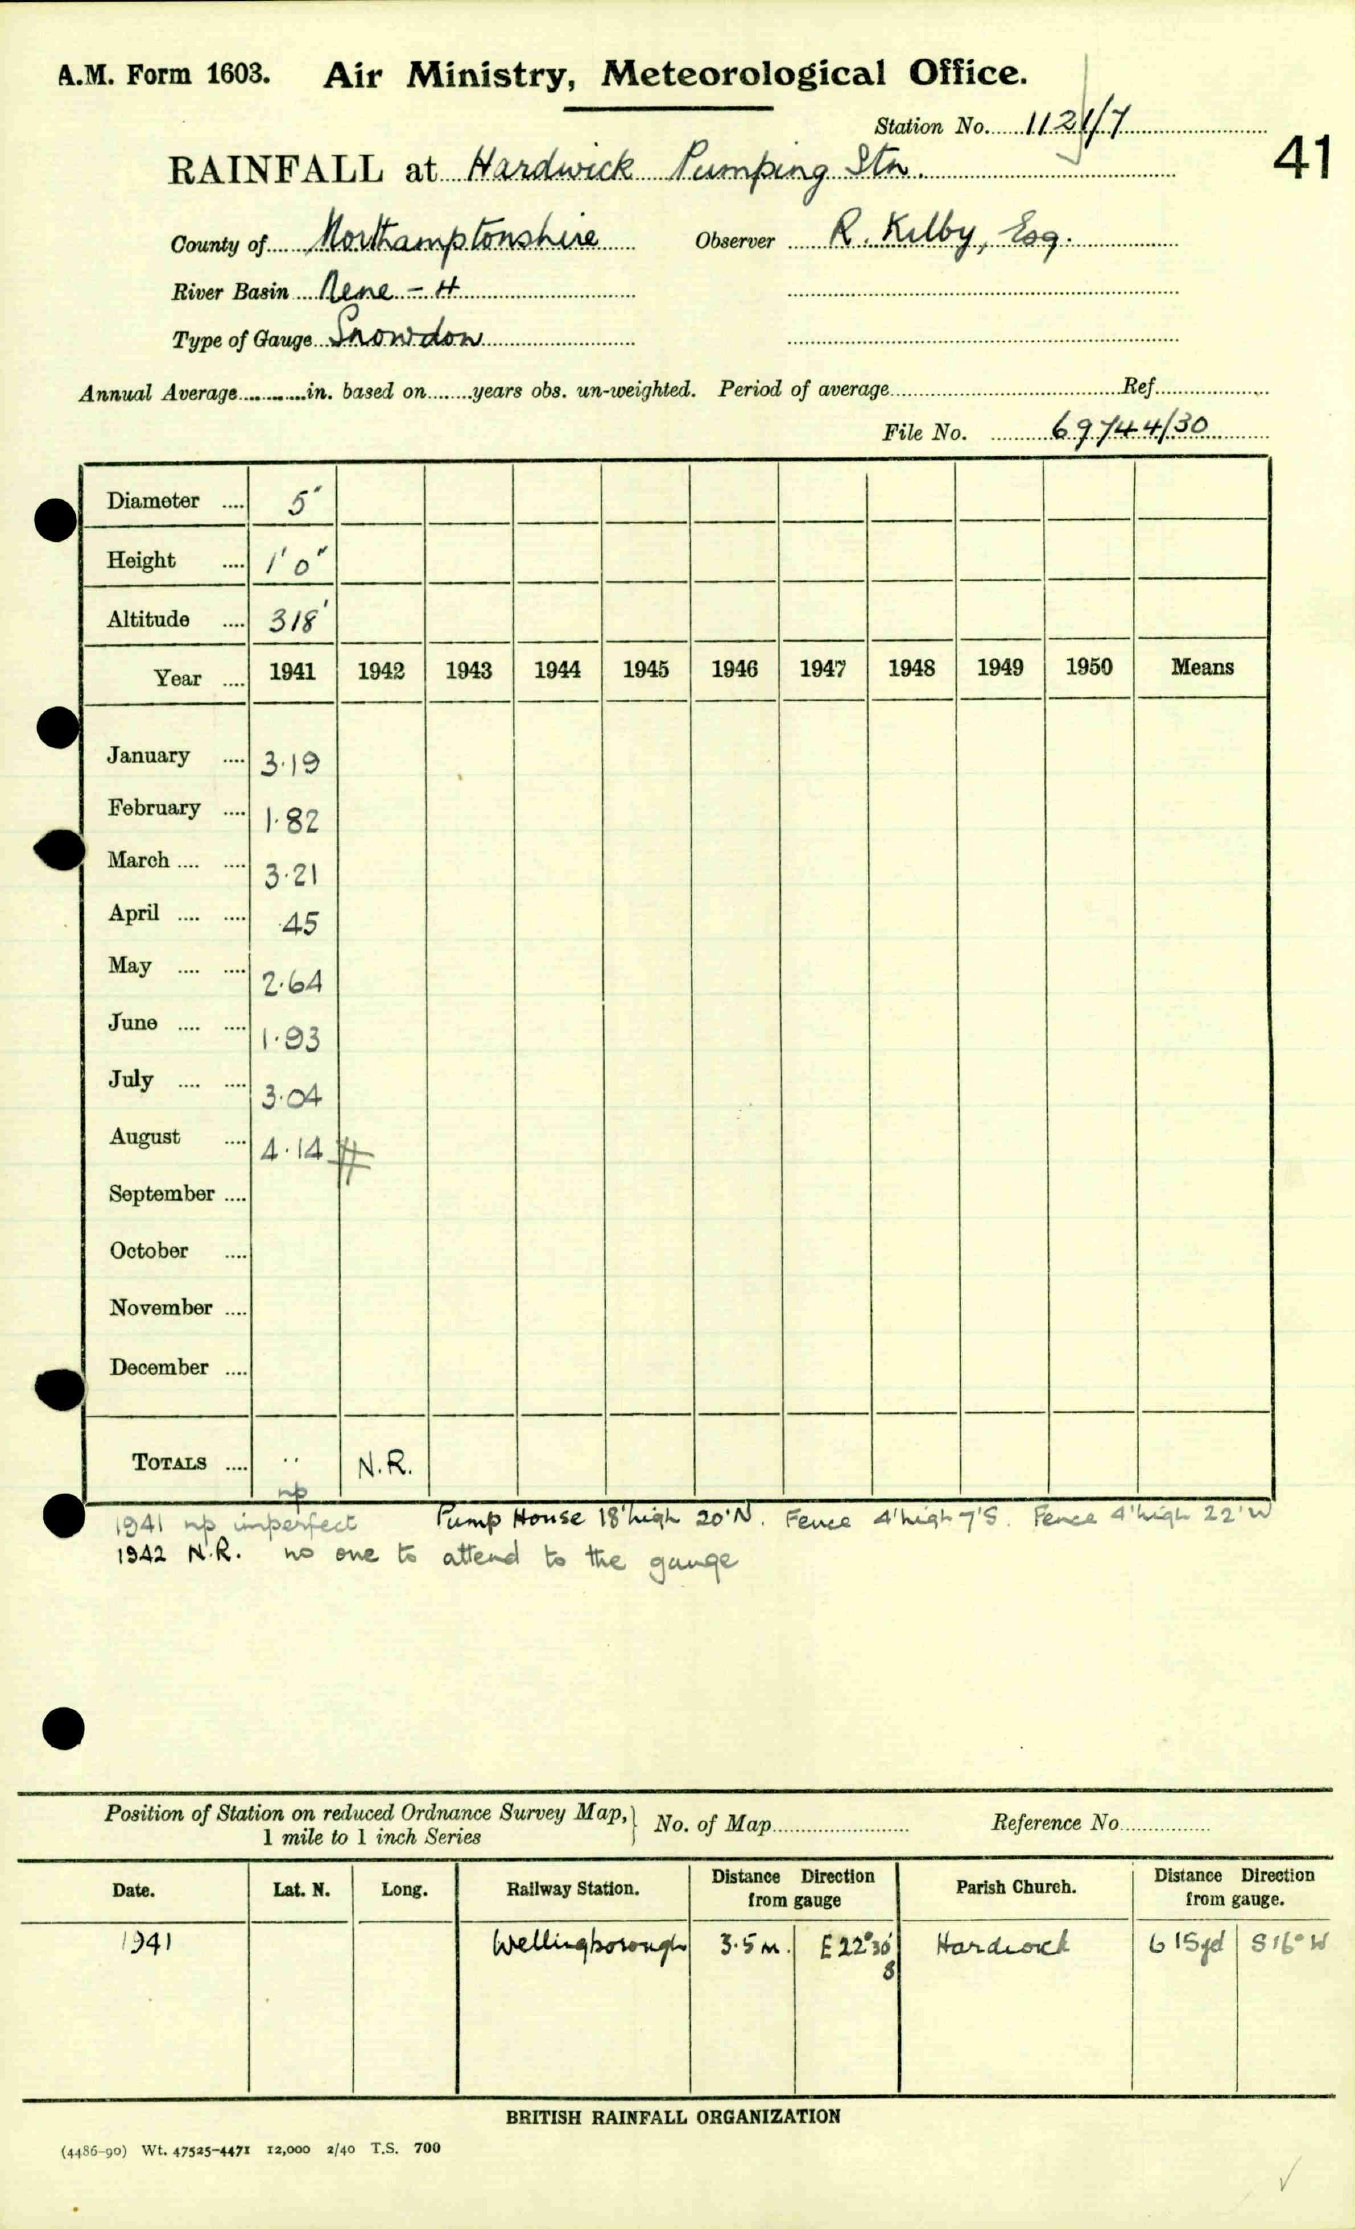 A.M. Form 1603. Air Ministry, Meteorological Office.
Station No. 1121/7
RAINFALL at Hardwick Pumping Stn. 41
County of Northamptonshire Observer R. Kilby, Esq.
River Basin Nene - H
Type of Gauge Snowdon
Annual Average in. based on years obs. un-weighted. Period of average Ref.
File No. 69744/30
Diameter 5"
Height 1'0"
Altitude 318'
Year 1941 1942 1943 1944 1945 1946 1947 1948 1949 1950 Means
January 3.19
February 1.82
March 3.21
April .45
May 2.64
June 1.93
July 3.04
August 4.14 #
September
October
November
December
TOTALS .. N.R.
np
1941 np imperfect Pump House 18' high 20' N. Fence 4' high 7' S. Fence 4' high 22' W
1942 N.R. no one to attend to the gauge
Position of Station on reduced Ordnance Survey Map, 1 mile to 1 inch Series No. of Map Reference No
Date. Lat. N. Long. Railway Station. Distance Direction from gauge Parish Church. Distance Direction from gauge.
1941 Wellingborough 3.5 m. E 22°30' S Hardwick 615yd S16°W
BRITISH RAINFALL ORGANIZATION
(4486-90) Wt. 47525-4471 12,000 2/40 T.S. 700